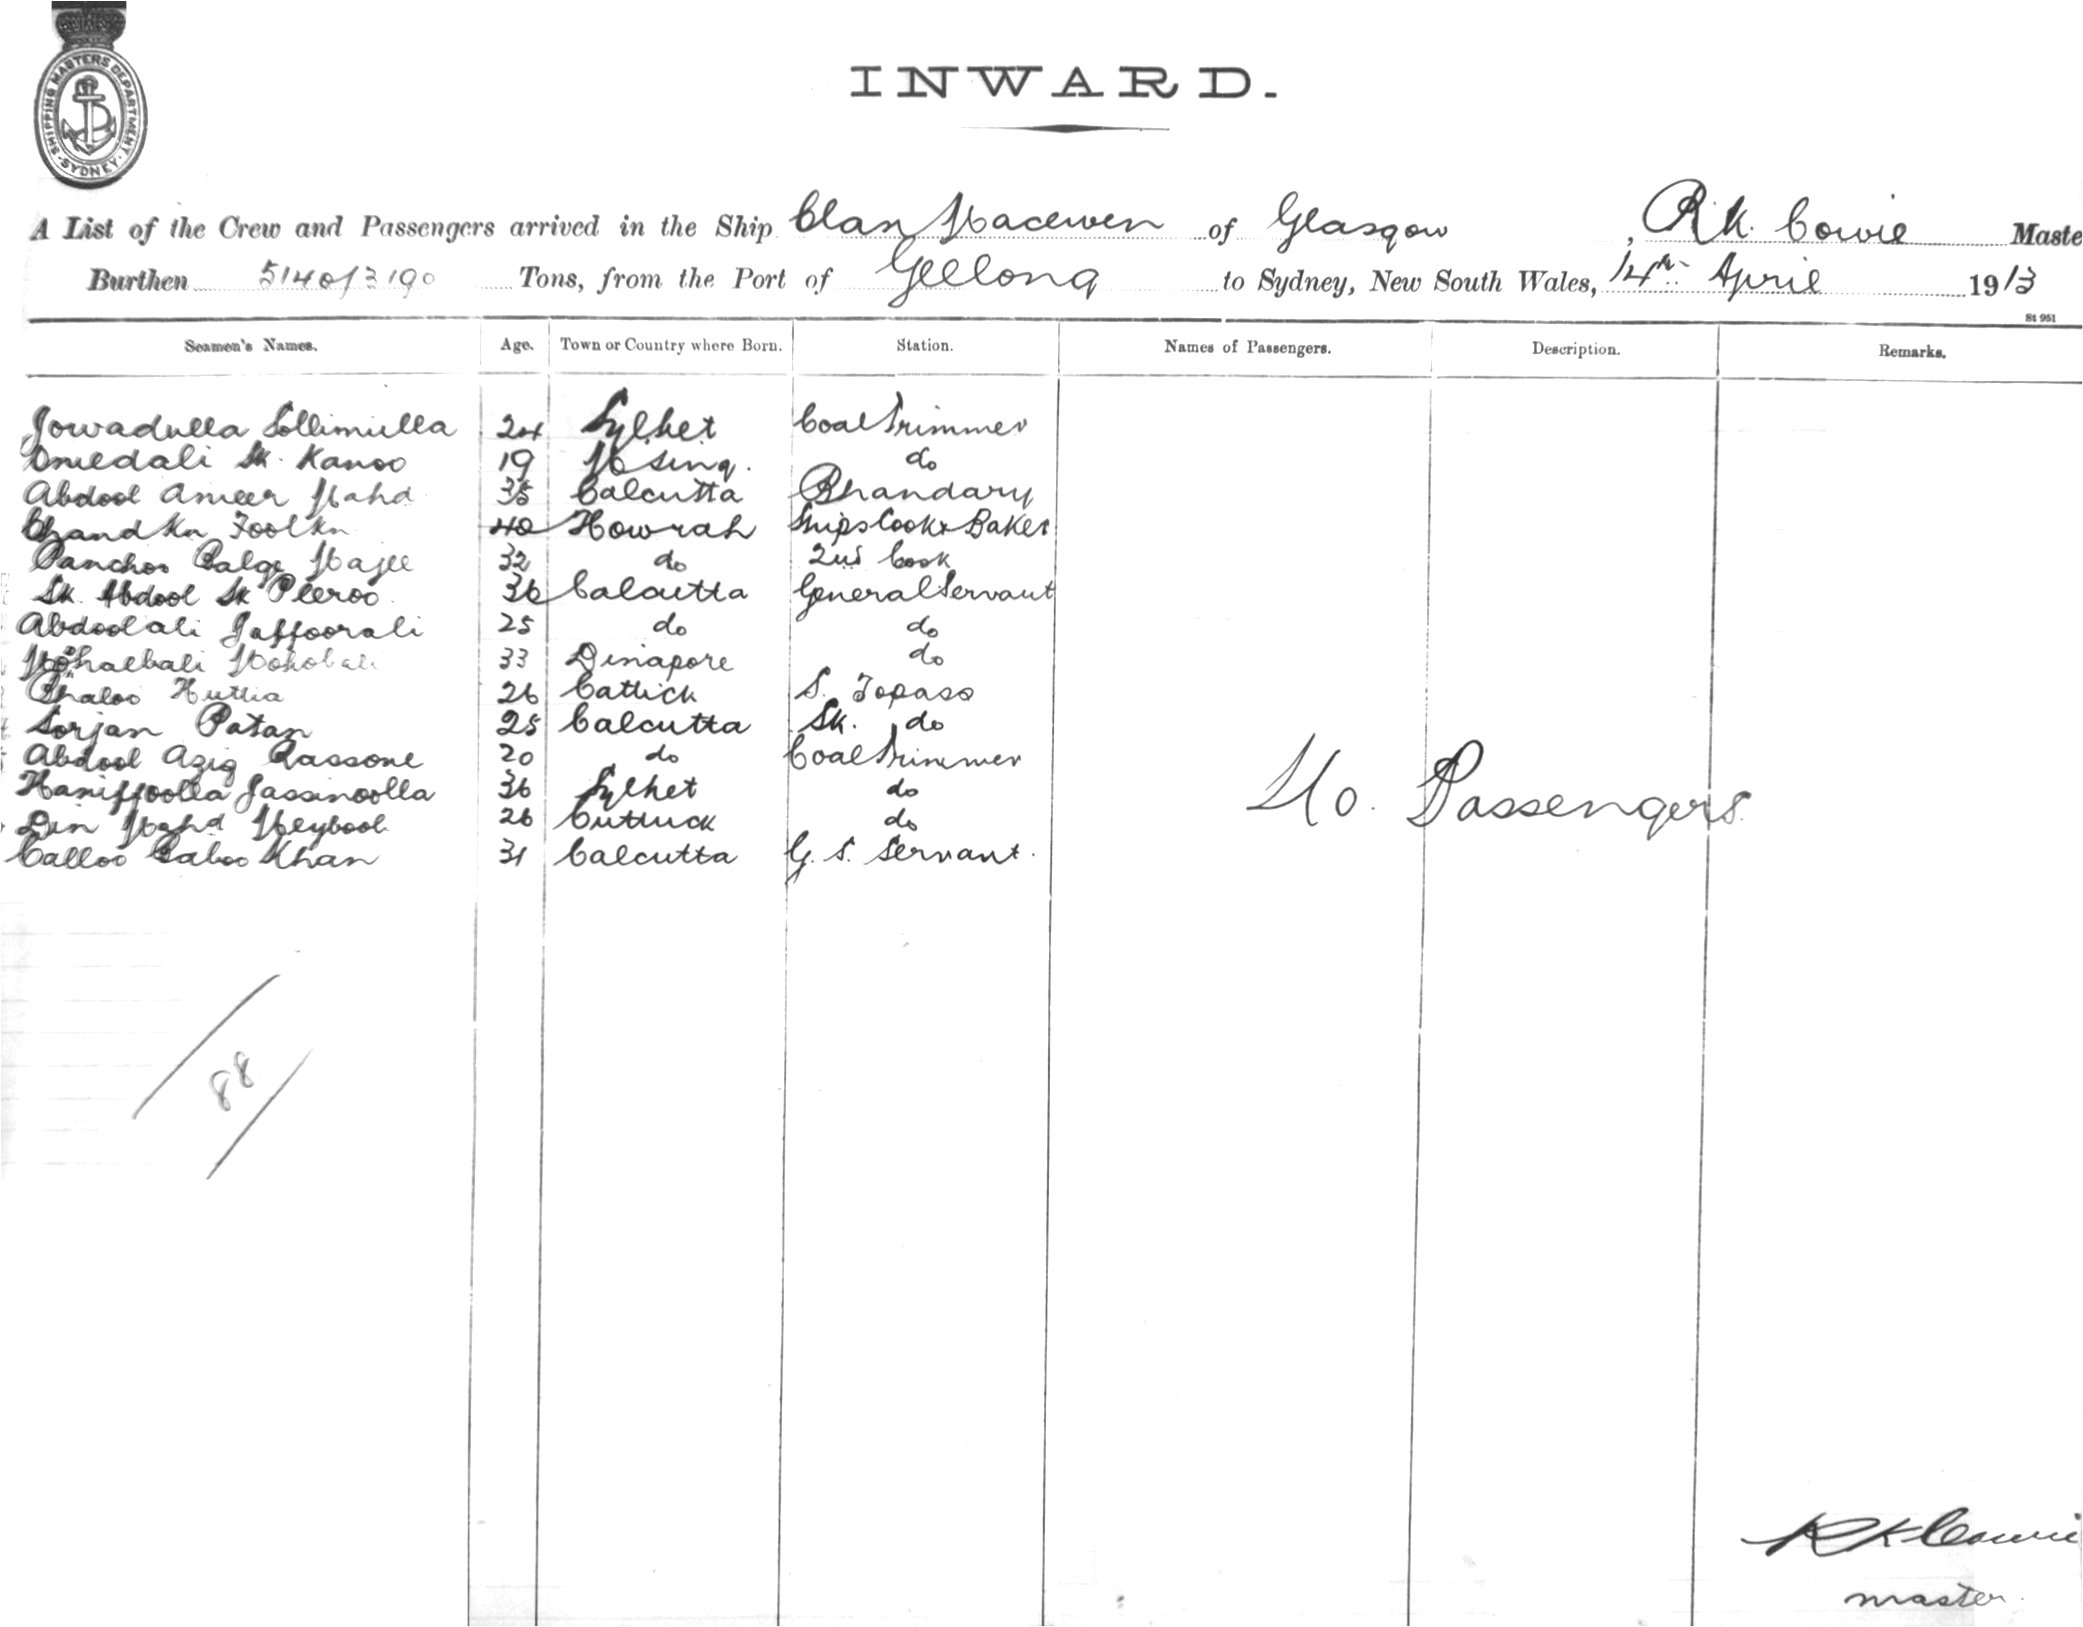 SHIPPING MASTERS DEPARTMENT · SYDNEY ·
INWARD.
A List of the Crew and Passengers arrived in the Ship Clan Macewen of Glasgow, R.K. Cowie Maste
Burthen 5140/3190 Tons, from the Port of Geelong to Sydney, New South Wales, 14th April 1913
St 951
Seamen's Names. Age. Town or Country where Born. Station. Names of Passengers. Description. Remarks.
Jowadulla Sollimulla 24 Sylhet Coal Trimmer
Omedali Sk. Kanoo 19 M Sing. do
Abdool Ameer Mahd 35 Calcutta Bhandary
Chand Kn Foolkn 40 Howrah Ships Cook & Baker
Panchoo Majee 32 do 2nd Cook
Sk. Abdool Sk Peeroo 36 Calcutta General Servant
Abdoolali Gaffoorali 25 do do
Mohabali 33 Dinapore do
Bhaloo Huttia 26 Cattick S. Topass
Sorjan Patan 25 Calcutta Sk. do
Abdool Azig Rassone 20 do Coal Trimmer
Haniffoolla Jassimoolla 36 Sylhet do
Din Mahd Meybool 26 Cuttuck do
Calloo Baboo Khan 31 Calcutta G. S. Servant.
No. Passengers.
88
R K Cowie
master.